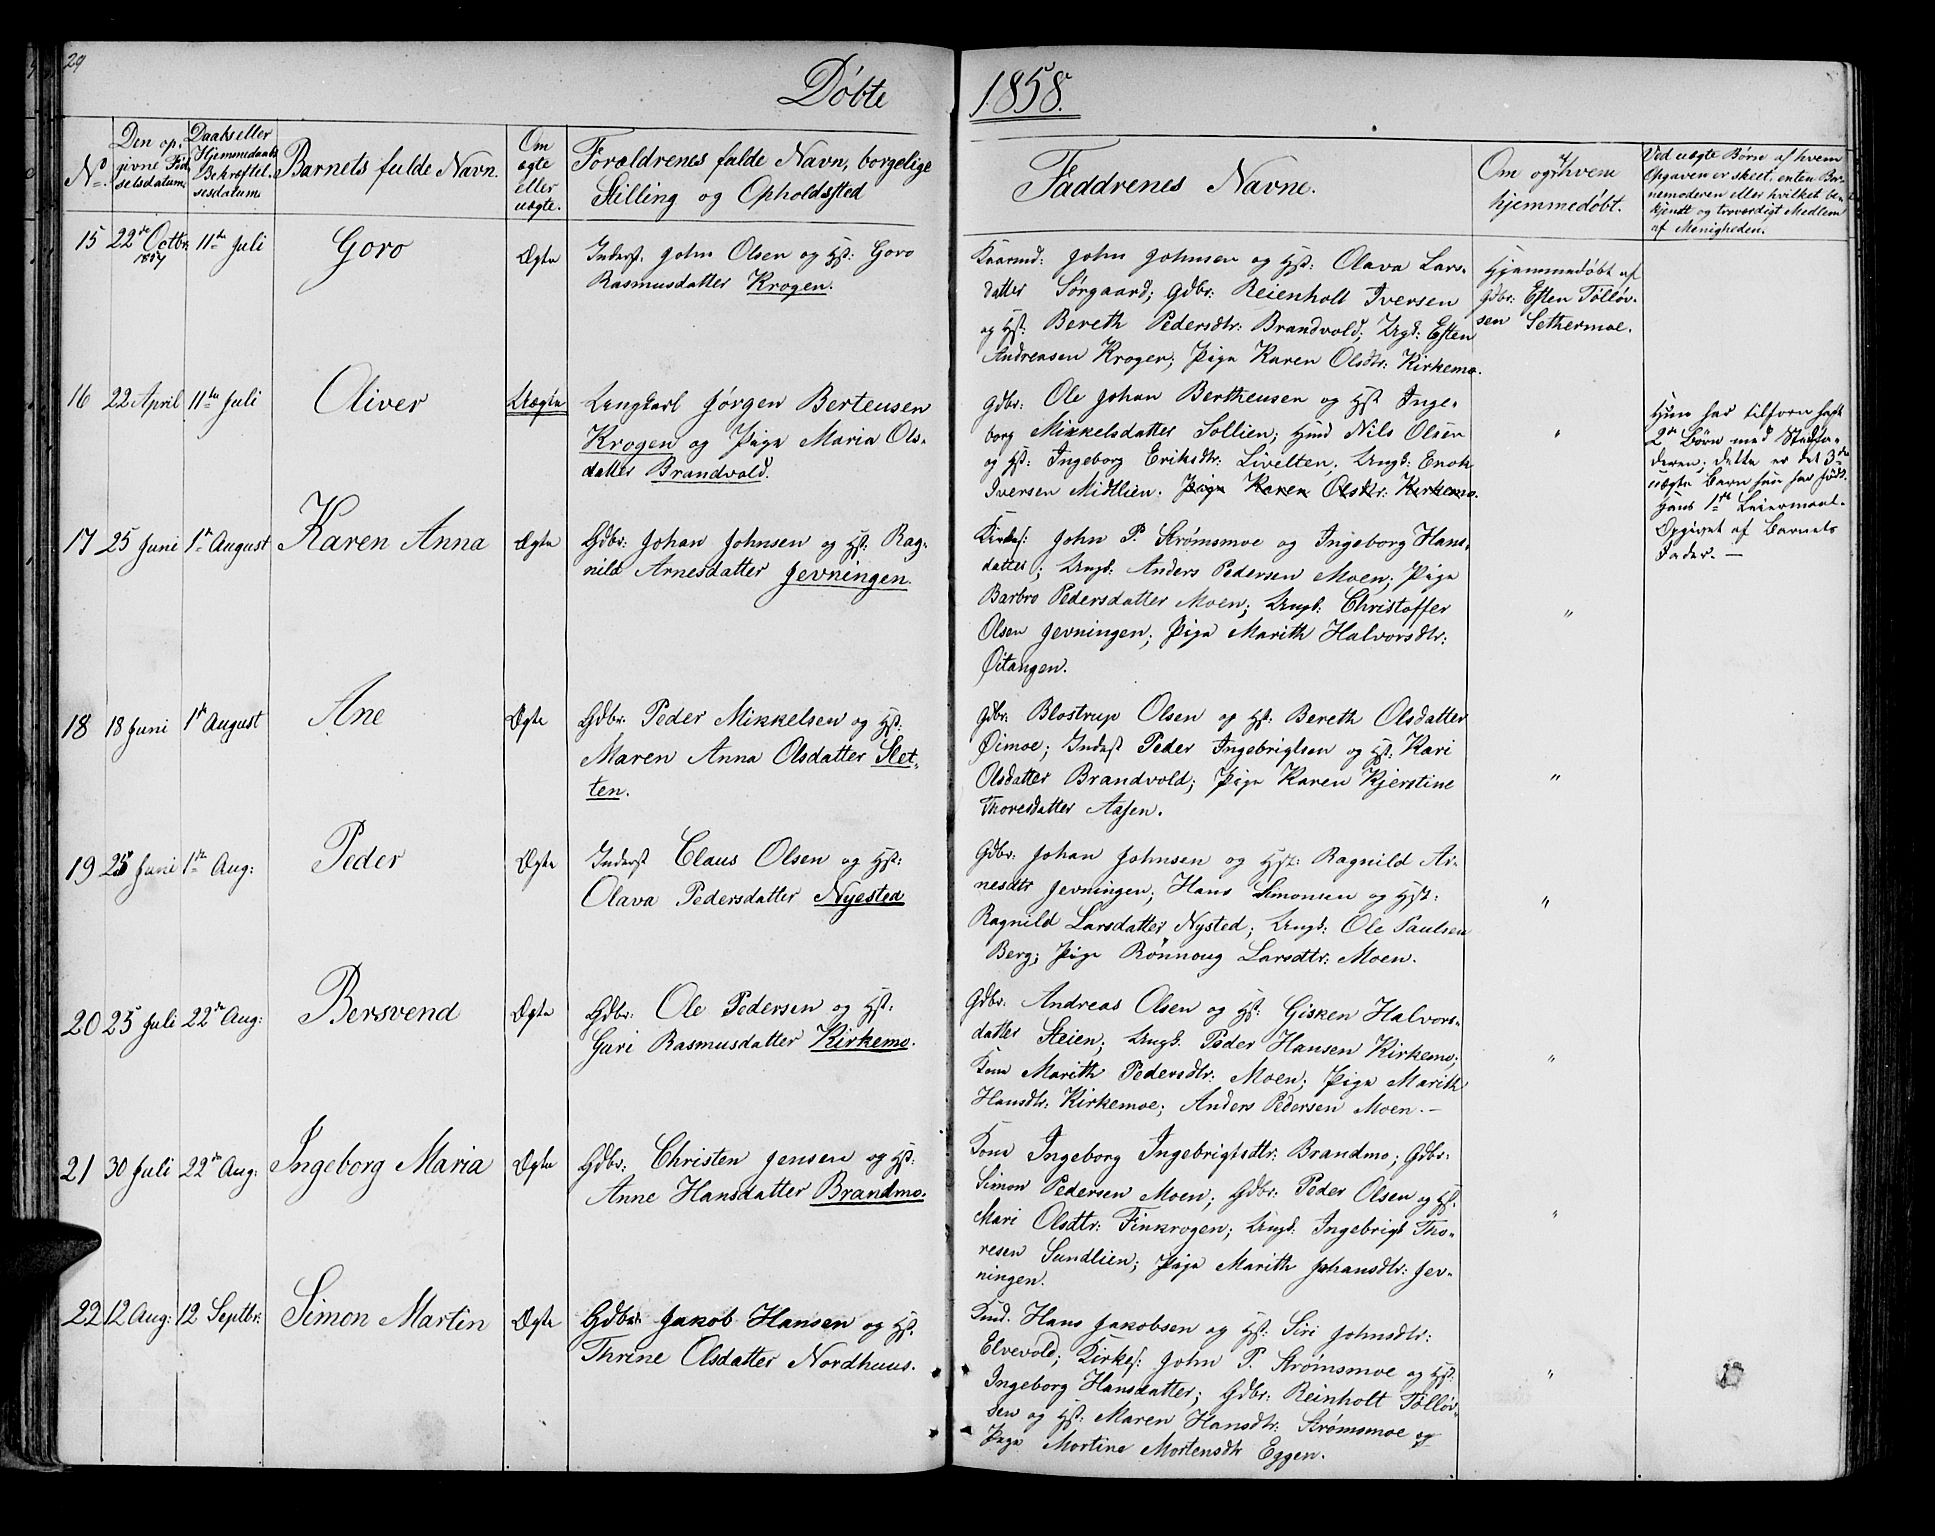 29
Døbte
1858.
No.
Den op-
givne Fød-
selsdatum.
Daabs eller
Hjemmedaabs
Bekræftel-
sesdatum.
Barnets fulde Navn.
Om
ægte
eller
uægte.
Forældrenes fulde Navn, borgelige
Stilling og Opholdssted
Faddrenes Navne.
Om og af hvem
hjemmedøbt.
Ved uægte Børn af hvem
Opgaven er skeet, enten Bar-
nemoderen eller hvilket be-
kjendt og troværdigt Medlem
af Menigheden.
15 22de Octbr. 11te Juli Goro Ægte Inderst. John Olsen og Hst: Goro
1857
Rasmusdatter Krogen.
Kaarmd: John Johnsen og Hst: Olava Lars-
datter Sørgaard; Gdbr: Reienholt Iversen
og Hst: Bereth Pedersdtr: Brandvold; Ungk: Esten
Andreasen Krogen; Pige Karen Olsdtr: Kirkemo.
Hjemmedøbt af
Gdbr: Esten Tølløv-
sen Sethermoe.
16 22 April 11te Juli Oliver Uægte Ungkarl Jørgen Berteusen
Krogen og Pige Maria Ols-
datter Brandvold.
Gdbr: Ole Johan Bertheusen og Hst Inge-
borg Mikkelsdatter Sollien; Hmd Nils Olsen
og Hst: Ingeborg Eriksdtr: Livelten; Ungk: Enok
Iversen Midtlien. Pige Karen Olsdtr: Kirkemo.
"
Hun har tilforn havt
2de Børn med Stedfa-
deren; dette er det 3die
uægte Barn hun har født.
Hans 1ste Leiermaal.
Opgivet af Barnets
Fader. —
17 25 Juni 1ste August Karen Anna Ægte Gdbr: Johan Johnsen og Hst: Rag-
nild Arnesdatter Jevningen.
Kirkes: John P. Strømsmoe og Ingeborg Hans-
datter; Ungk: Anders Pedersen Moen; Pige
Barbro Pedersdatter Moen; Ungk: Christoffer
Olsen Jevningen; Pige Marith Halvorsdtr:
Øitangen.
"
18 18 Juni 1ste August Ane Ægte Gdbr: Peder Mikkelsen og Hst:
Maren Anna Olsdatter Slet-
ten.
Gdbr: Blostrup Olsen og Hst: Bereth Olsdatter
Øimoe; Inderst Peder Ingebrigtsen og Hst: Kari
Olsdatter Brandvold; Pige Karen Kjerstine
Thoresdatter Aasen.
"
19 25 Juni 1ste Aug: Peder Ægte Inderst Claus Olsen og Hst:
Olava Pedersdatter Nyested
Gdbr: Johan Johnsen og Hst: Ragnild Ar-
nesdtr Jevningen; Hans Simonsen og Hst:
Ragnild Larsdatter Nysted; Ungk: Ole Paulsen
Berg; Pige Rönnoug Larsdtr: Moen.
"
20 25 Juli 22de Aug: Bersvend Ægte Gdbr: Ole Pedersen og Hst:
Guri Rasmusdatter Kirkemo.
Gdbr: Andreas Olsen og Hst: Gisken Halvors-
datter Steien; Ungk. Peder Hansen Kirkemo;
Kone Marith Pedersdtr: Moen; Pige Marith
Hansdtr: Kirkemoe; Anders Pedersen Moen. —
"
21 30 Juli 22de Aug: Ingeborg Maria Ægte Gdbr: Christen Jensen og Hst:
Anne Hansdatter Brandmo.
Kone Ingeborg Ingebrigtsdtr: Brandmo; Gdbr:
Simon Pedersen Moen; Gdbr: Peder Olsen og Hst:
Mari Olsdtr: Finkrogen; Ungk: Ingebrigt Tho-
resen Sundlien; Pige Marith Johansdtr: Jev-
ningen.
"
22 12 Aug: 12 Septbr: Simon Martin Ægte Gdbr: Jakob Hansen og Hst.
Thrine Olsdatter Nordhuus.
Hans Jakobsen og Hst: Siri Johnsdtr:
Elvevold; Kirkes: John P. Strømsmoe og Hst:
Ingeborg Hansdatter; Gdbr: Reinholt Tølløv-
sen og Hst: Maren Hansdtr: Strømsmoe og
Pige Martine Mortensdtr Eggen.
"